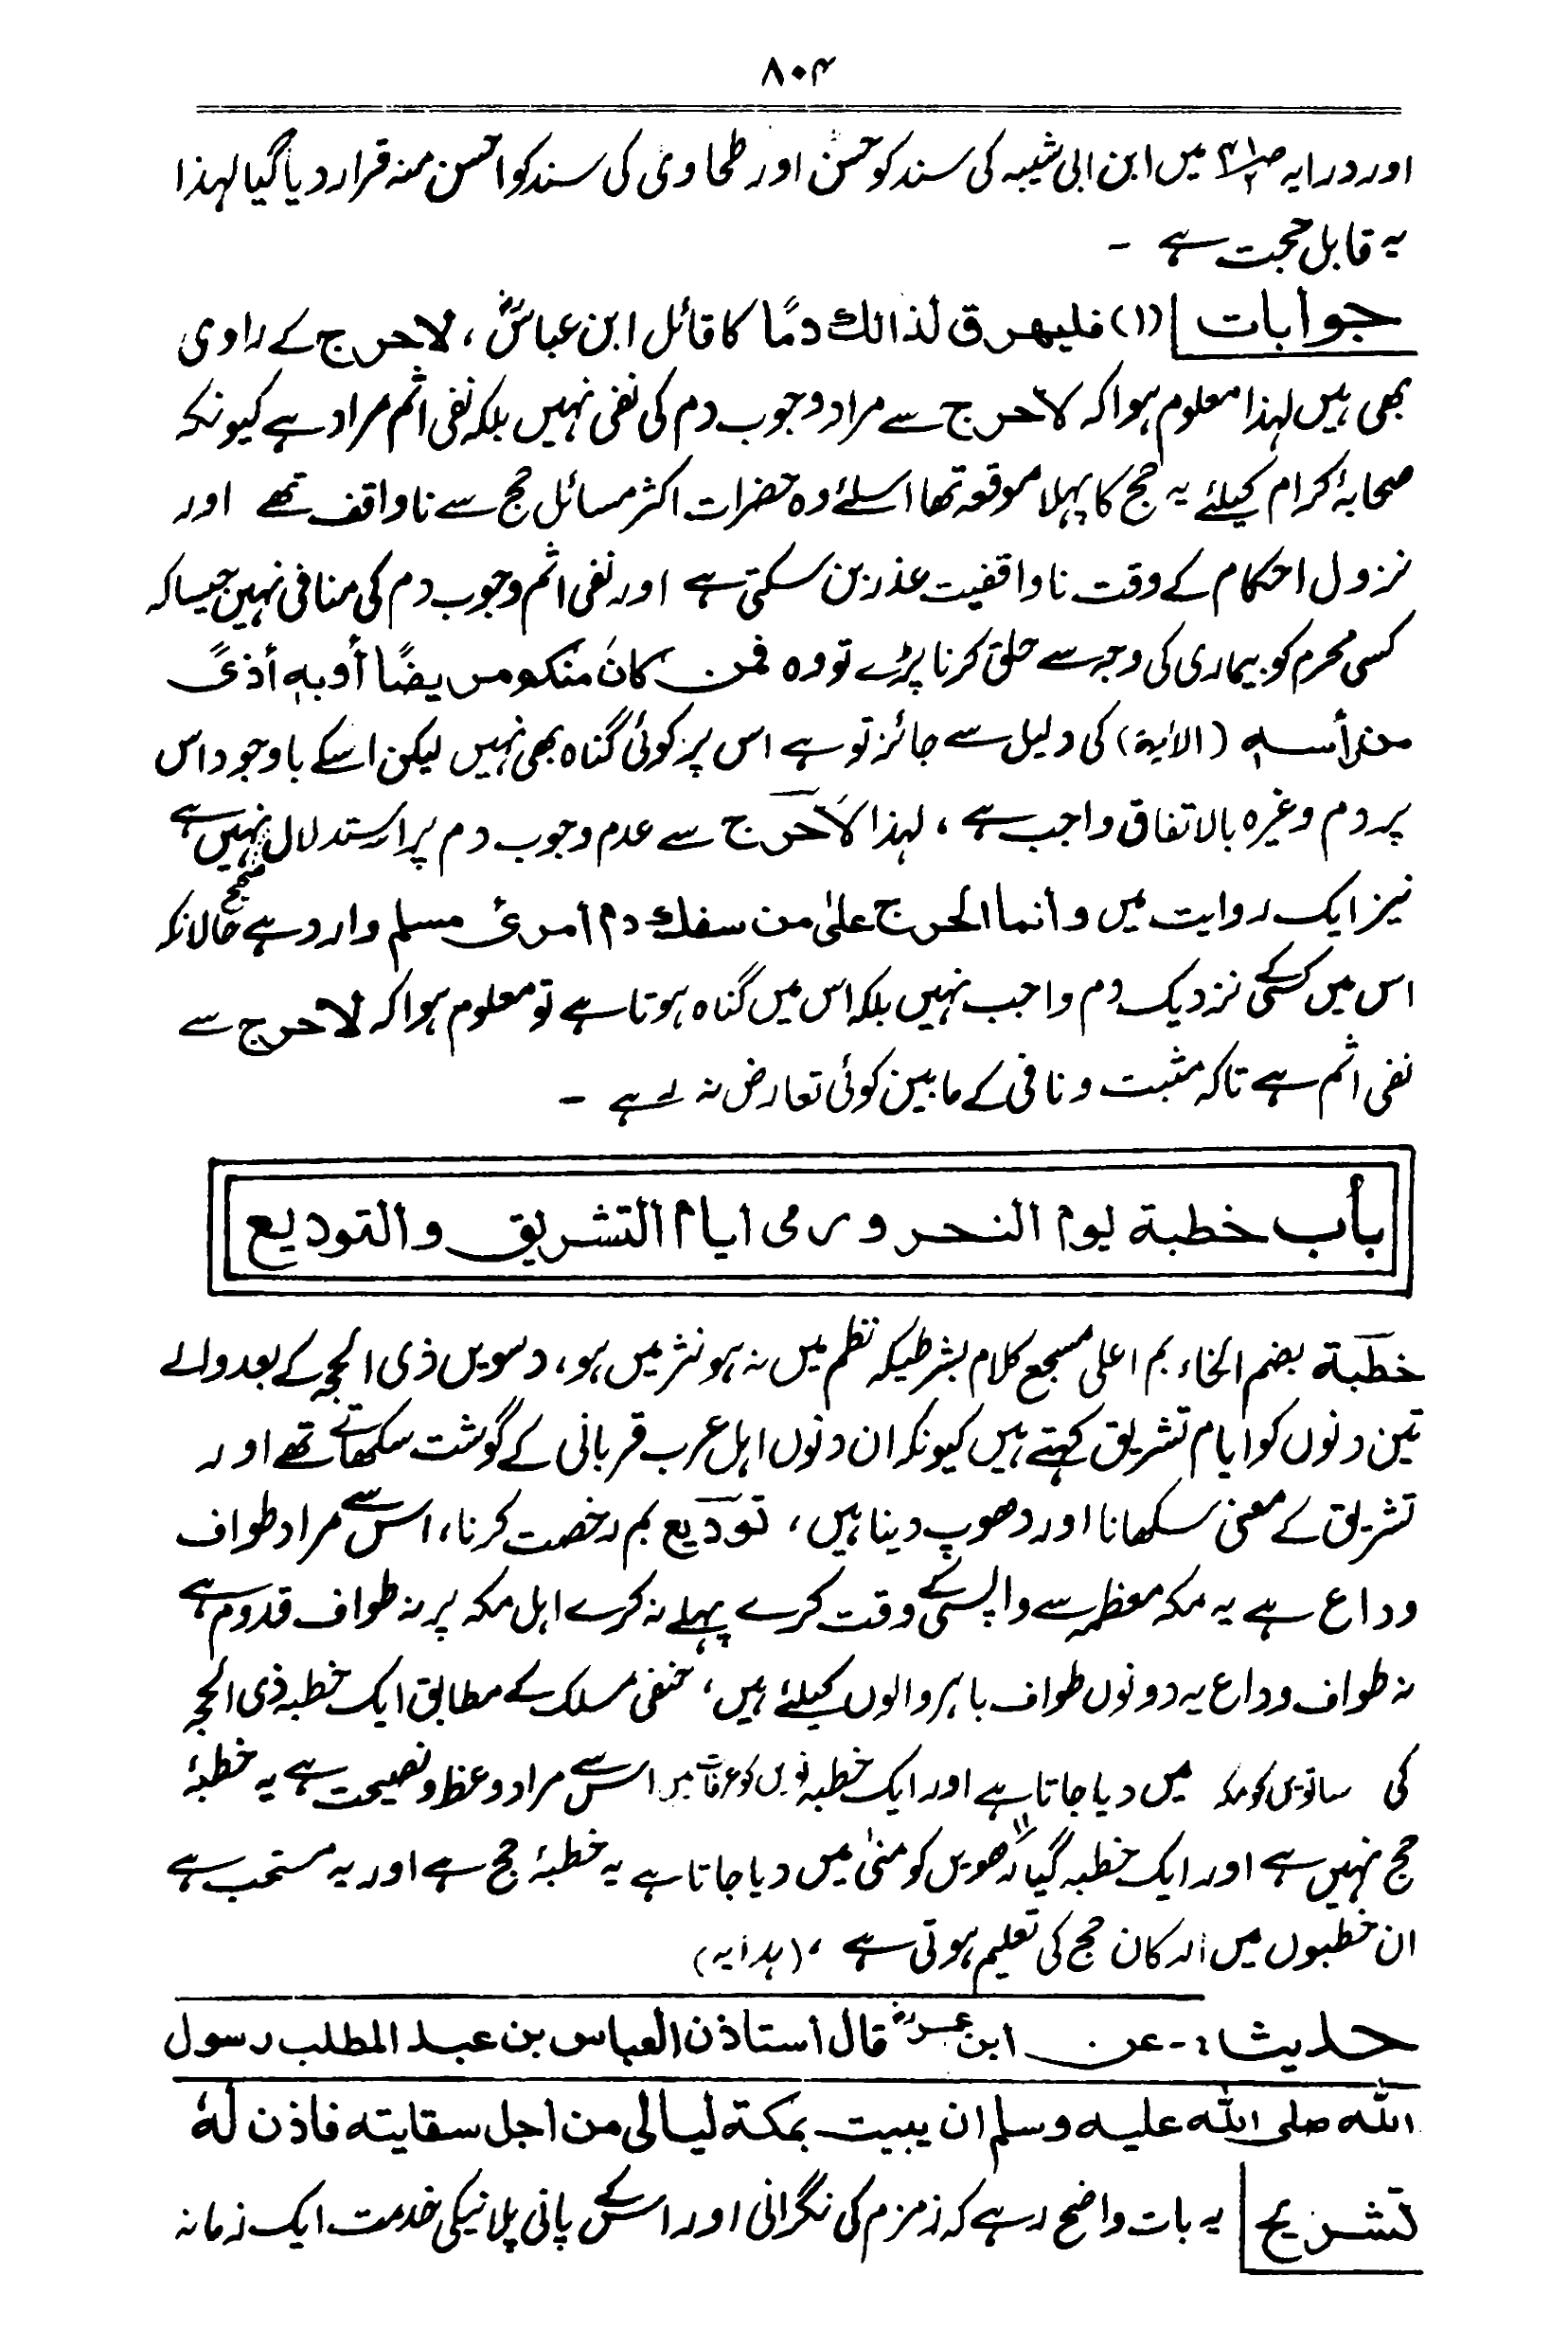 ۸۰۴
اور درایہ ص۴۱/۲ میں ابن ابی شیبہ کی سند کو حسن اور طحاوی کی سند کو احسن منہ قرار دیا گیا لہذا
یہ قابل حجت ہے ۔
جوابات (۱) فلیهرق لذالك دمًا کا قائل ابن عباسؓ ، لاحرج کے راوی
بھی ہیں لہذا معلوم ہوا کہ لاحرج سے مراد وجوب دم کی نفی نہیں بلکہ نفی اثم مراد ہے کیونکہ
صحابۂ کرام کیلئے یہ حج کا پہلا موقعہ تھا اسلئے وہ حضرات اکثر مسائل حج سے ناواقف تھے اور
نزول احکام کے وقت ناواقفیت عذر بن سکتی ہے اور نفی اثم وجوب دم کی منافی نہیں جیسا کہ
کسی محرم کو بیماری کی وجہ سے حلق کرنا پڑے تو وہ فمن کان منکم مریضًا أو بهٖ أذًی
من رأسهٖ (الاٰیة) کی دلیل سے جائز تو ہے اس پر کوئی گناہ بھی نہیں لیکن اسکے باوجود اس
پر دم وغیرہ بالاتفاق واجب ہے ، لہذا لاَحَرج سے عدم وجوب دم پر استدلال صحیح نہیں ہے
نیز ایک روایت میں وأنما الحرج علیٰ من سفك دم أمرئ مسلم وارد ہے حالانکہ
اس میں کسی کے نزدیک دم واجب نہیں بلکہ اس میں گناہ ہوتا ہے تو معلوم ہوا کہ لاحرج سے
نفی اثم ہے تاکہ مثبت و نافی کے مابین کوئی تعارض نہ رہے ۔
بأب خطبة یوم النحر ورمی ایام التشریق والتودیع
خطبة بضم الخاء بم اعلی مسجع کلام بشرطیکہ نظم میں نہ ہو نثر میں ہو، دسویں ذی الحجہ کے بعد والے
تین دنوں کو ایام تشریق کہتے ہیں کیونکہ ان دنوں اہل عرب قربانی کے گوشت سکھاتے تھے اور
تشریق کے معنی سکھانا اور دھوپ دینا ہیں ، تودیع بم رخصت کرنا، اس سے مراد طواف
وداع ہے یہ مکہ معظمہ سے واپسی کے وقت کرے پہلے نہ کرے اہل مکہ پر نہ طواف قدوم ہے
نہ طواف وداع یہ دونوں طواف باہر والوں کیلئے ہیں ، حنفی مسلک کے مطابق ایک خطبہ ذی الحجہ
کی ساتویں کو مکہ میں دیا جاتا ہے اور ایک خطبہ نویں کو عرفات میں اس سے مراد وعظ ونصیحت ہے یہ خطبۂ
حج نہیں ہے اور ایک خطبہ گیارھویں کو منیٰ میں دیا جاتا ہے یہ خطبۂ حج ہے اور یہ مستحب ہے
ان خطبوں میں ارکان حج کی تعلیم ہوتی ہے ، (ہدایہ)
حدیث :- عن ابن عمرؓ قال أستاذن العباس بن عبد المطلب رسول
الله صلی الله علیه وسلم ان یبیت بمکة لیالی من اجل سقایته فاذن لهٗ
تشریح یہ بات واضح رہے کہ زمزم کی نگرانی اور اس کے پانی پلانیکی خدمت ایک زمانہ